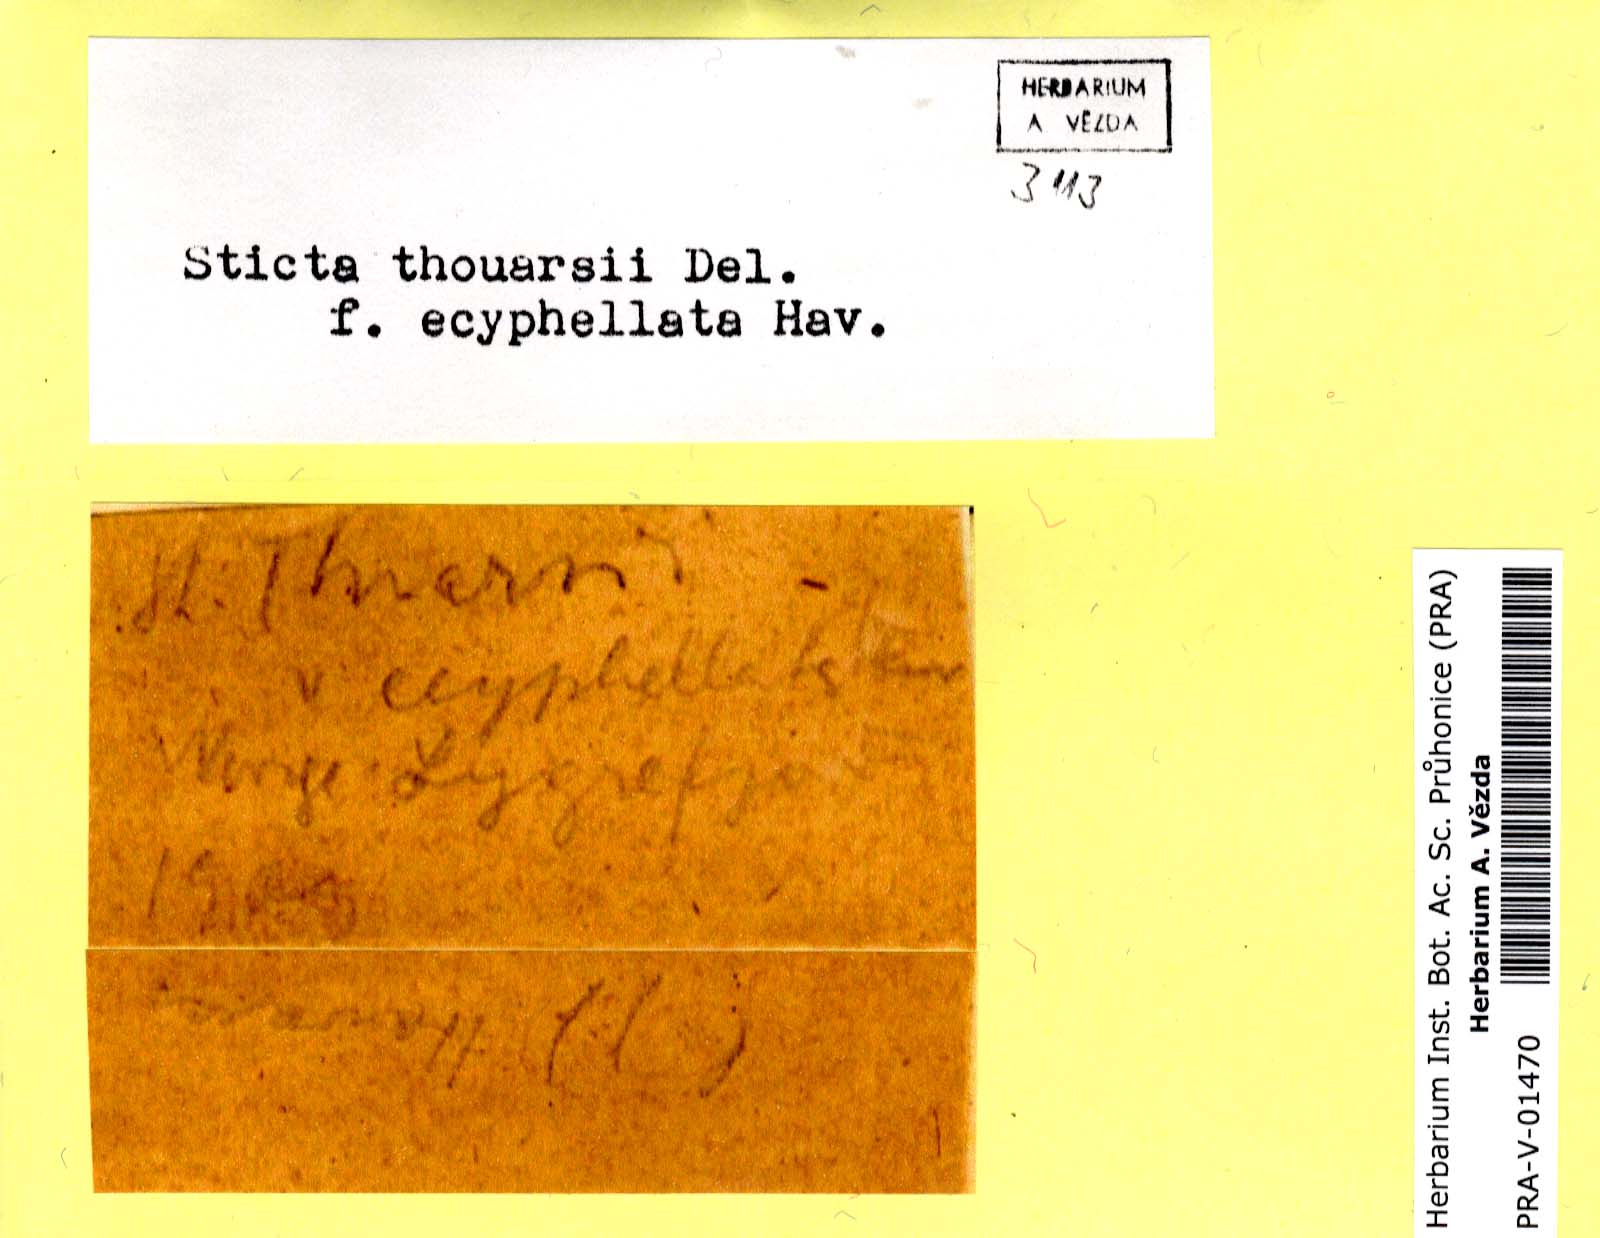 HERBARIUM
A VĚZDA
3113
Sticta thouarsii Del.
f. ecyphellata Hav.
St. Thuarsii
v ecyphellata Hav
Norge Lygrefjord
19
Herbarium Inst. Bot. Ac. Sc. Průhonice (PRA)
Herbarium A. Vězda
PRA-V-01470